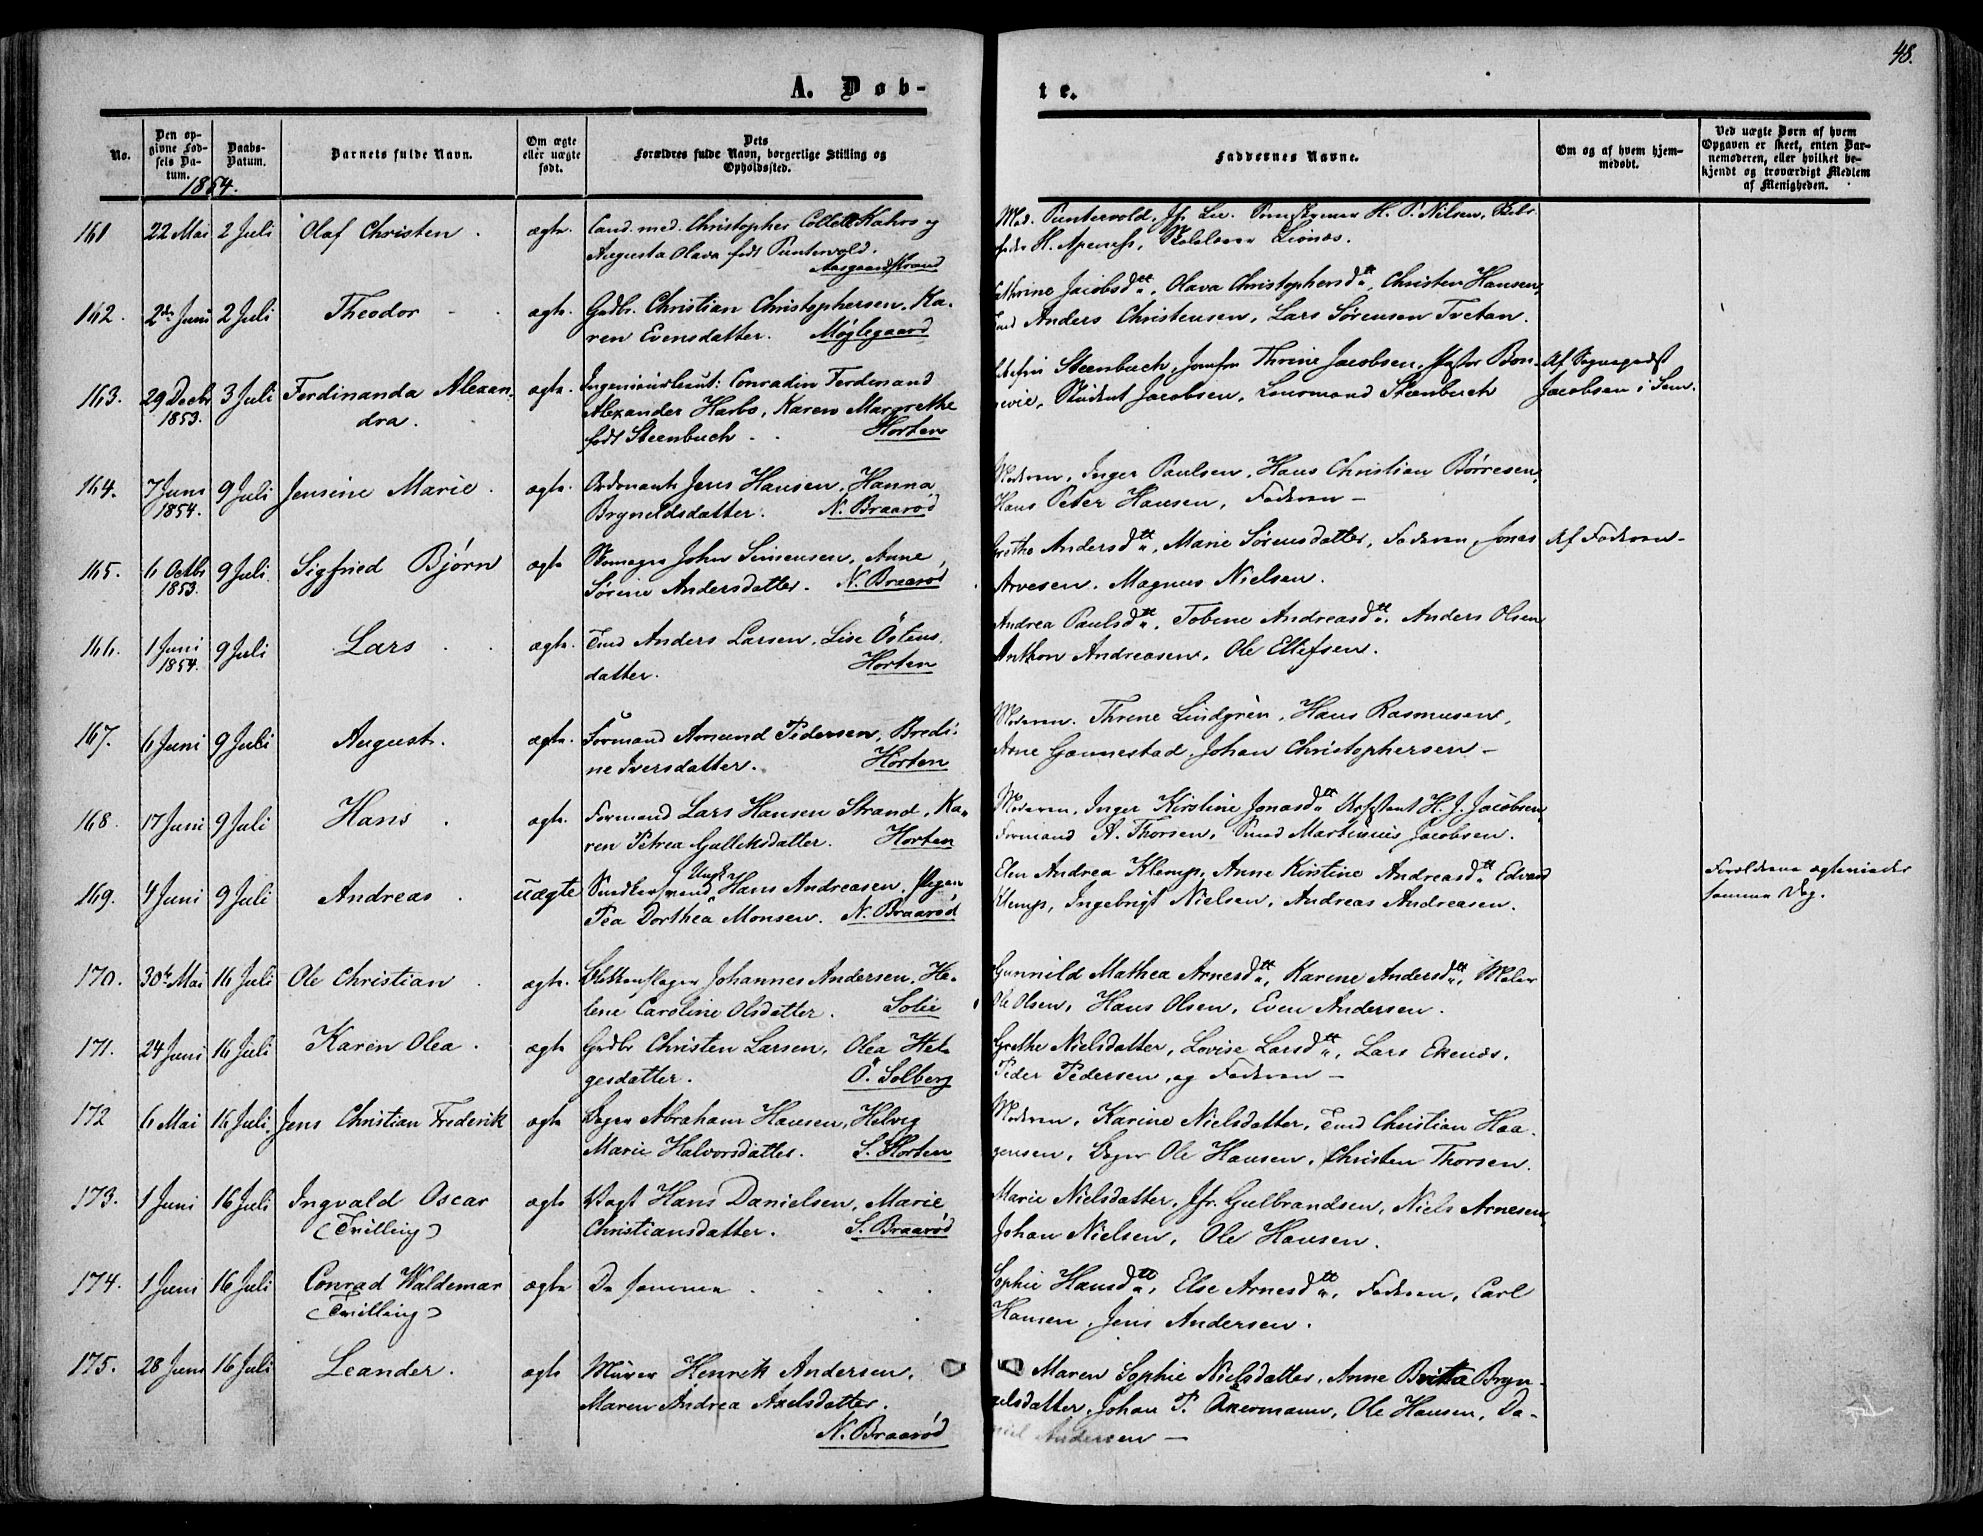 48.
A. Døb-
te.
No.
Den op-
givne Fød-
sels Da-
tum.
1854.
Daabs-
Datum.
Barnets fulde Navn.
Om ægte
eller uægte
født.
Dets
Forældres fulde Navn, borgerlige Stilling og
Opholdssted.
Faddernes Navne.
Om og af hvem hjem-
medøbt.
Ved uægte Børn af hvem
Opgaven er skeet, enten Bar-
nemoderen, eller hvilket be-
kjendt og troværdigt Medlem
af Menigheden.
161 22 Mai 2 Juli Olaf Christen ægte. Cand. med. Christopher Collett Kahrs og
Augusta Olava født Puntervold.
Aasgaardstrand
Mad. Puntervold, Jfr. H. P. Nilsen,
H. Apeness, Lionæs.
162. 2den Juni 2 Juli Theodor ægte. Gdbr. Christian Christophersen, Ka-
ren Evensdatter. Møglegaard
Cathrine Jacobsdtt., Olava Christophersdtt., Christen Hansen,
Tmd Anders Christensen, Lars Sørensen Tvetan.
163. 29 Decbr 1853. 3 Juli Ferdinanda Alexan-
dra. ægte. Ingenieurlieut: Conradin Ferdinand
Alexander Harbo, Karen Margrethe
født Steenbuch Horten
Steenbuch, Jomfru Thrine Jacobsen, Pastor Bon-
nevie, Student Jacobsen, Steenbuch
Af Sognepræst
Jacobsen i Sem.
164. 7 Juni 1854. 9 Juli Jensine Marie. ægte. Ordonants Jens Hansen, Hanna
Bryneldsdatter. N. Braarød
Moderen, Inger Paulsen, Hans Christian Børresen,
Hans Peter Hansen, Faderen –
165. 6 Octbr 1853. 9 Juli Sigfried Bjørn ægte Skomager John Simensen, Anne
Sørine Andersdatter. N. Braarød
Grethe Andersdtt., Marie Sørensdatter, Faderen, Jonas
Arvesen, Magnus Nielsen.
Af Faderen –
166. 1 Juni 1854. 9 Juli Lars ægte. Tmd Anders Larsen, Lise Östens-
datter. Horten
Andrea Paulsdtt., Tobine Andreasdtt. Anders Olsen
Anthon Andreasen, Ole Ellefsen.
167. 6 Juni 9 Juli August. ægte. Formand Amund Pedersen, Bredi-
ne Iversdatter. Horten
Moderen. Thrine Lindgren, Hans Rasmusen,
Arne Gannestad, Johan Christophersen –
168. 17 Juni 9 Juli Hans ægte. Formand Lars Hansen Strand, Ka-
ren Petrea Gulleksdatter. Horten
Moderen, Inger Kirstine Jonasdtt. H. J. Jacobsen,
Formand A. Thorsen, Smed Martinius Jacobsen.
169. 4 Juni 9 Juli Andreas uægte Snedkersvend Ungk. Hans Andreasen, Pigen
Pea Dorthea Monsen. N. Braarød
Elen Andrea Klemp, Anne Kirstine Andreasdtt. Edvard
Klemp, Ingebrigt Nielsen, Andreas Andreasen.
Forældrene ægteviedes
samme Dag.
170. 30te Mai 16 Juli Ole Christian ægte. Blikkenslager Johannes Andersen, He-
lene Caroline Olsdatter. Solie
Gunnild Mathea Arnesdtt., Karine Andersdtt., Maler
Ole Olsen, Hans Olsen, Even Andersen.
171. 24 Juni 16 Juli Karen Olea. ægte Gdbr Christen Larsen, Olea Hel-
gesdatter. Ö. Solberg
Grethe Nielsdatter, Lovise Larsdtt., Lars Ekenæs,
Peder Pedersen, og Faderen –
172 6 Mai 16 Juli, Jens Christian Frederik ægte Bager Abraham Hansen, Helvig
Marie Halvorsdatter. S. Horten
Moderen, Karine Nielsdatter, Tmd Christian Haa-
gensen, Bager Ole Hansen, Christen Thorsen.
173. 1 Juni 16 Juli Ingvald Oscar
(Tvilling) ægte Vagt Hans Danielsen, Marie
Christiansdatter. S. Braarød
Marie Nielsdatter, Jfr. Gulbrandsen, Niels Arnesen,
Johan Nielsen, Ole Hansen.
174. 1 Juni 16 Juli Conrad Waldemar
(Tvilling) ægte De samme
Sophie Hansdtt., Else Arnesdtt., Faderen, Carl
Hansen, Jens Andersen.
175. 28 Juni 16 Juli Leander. ægte Murer Henrik Andersen,
Maren Andrea Axelsdatter.
N. Braarød
Maren Sophie Nielsdatter, Anne Britta Bryn-
gelsdatter, Johan P. Akermann, Ole Hansen, Da-
niel Andersen –